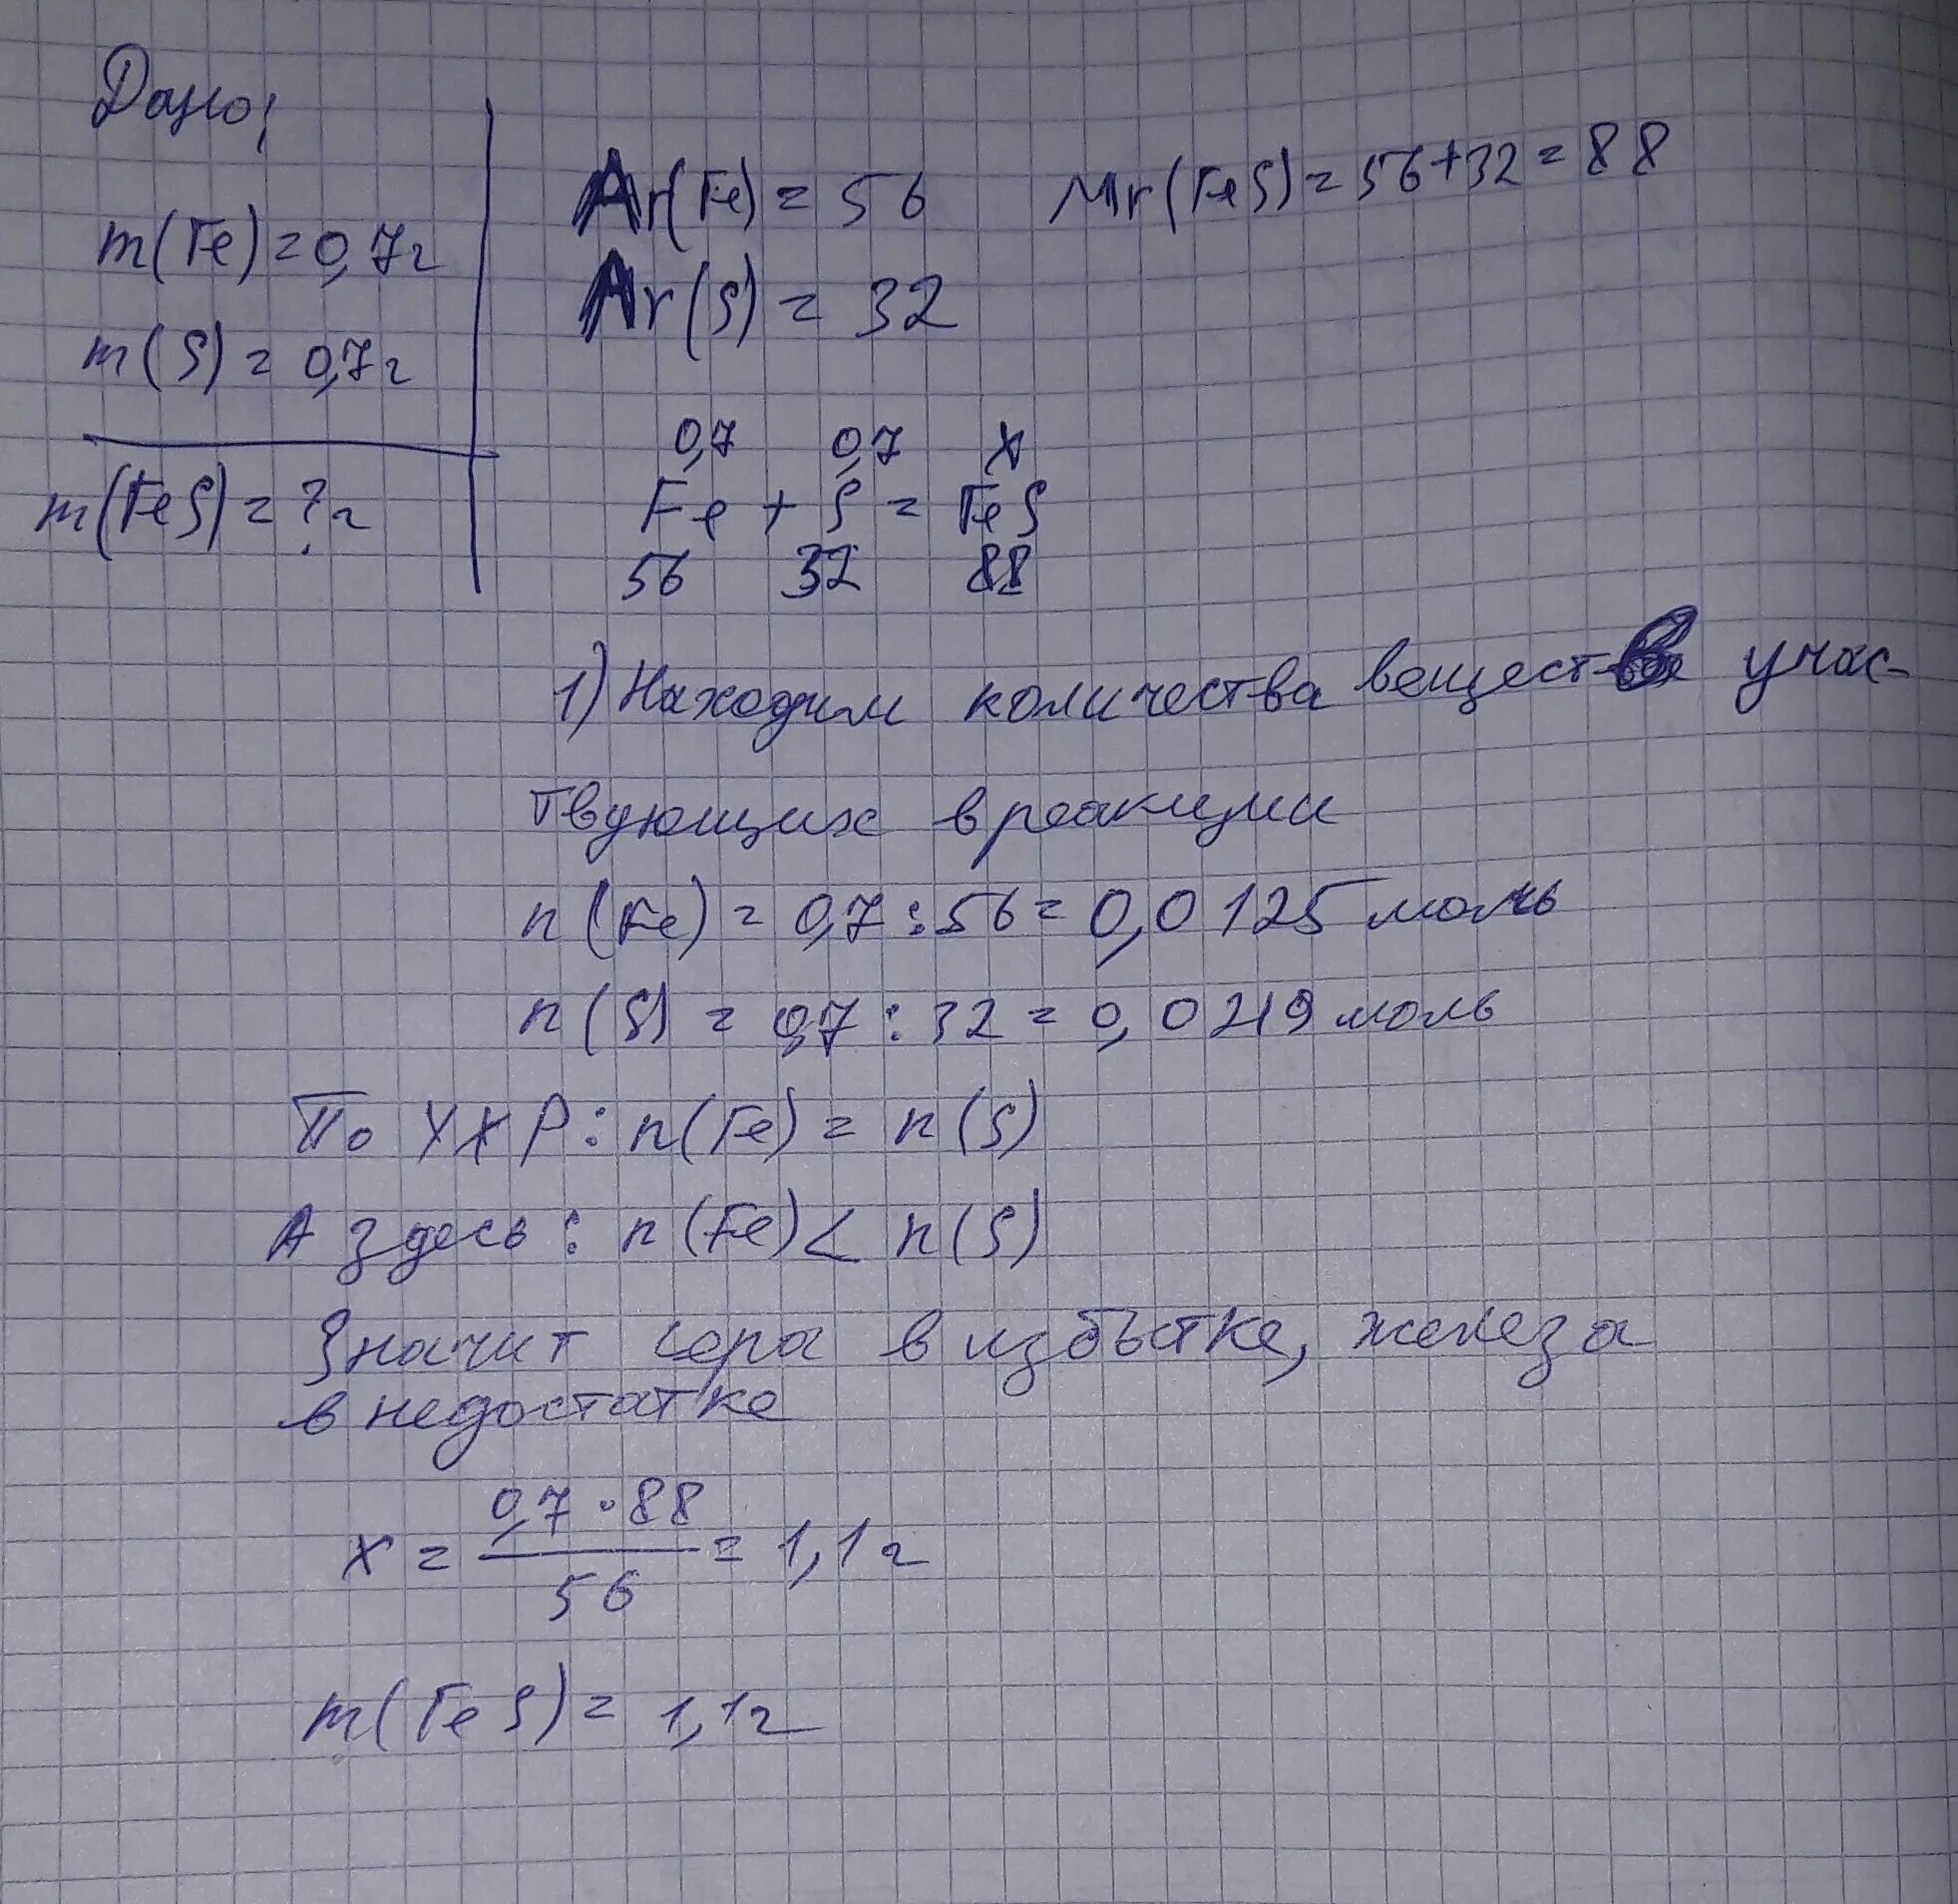 Дано;
m(Fe)=0,7г
m(S)=0,7г
m(FeS)=?г
Ar(Fe)=56 Mr(FeS)=56+32=88
Ar(S)=32
0,7 0,7 x
Fe + S = FeS
56 32 88
1) Находим количества веществ учас-
твующих в реакции
n(Fe)=0,7:56=0,0125 моль
n(S)=0,7:32=0,0219 моль
По УХР: n(Fe)=n(S)
А здесь: n(Fe)<n(S)
Значит сера в избытке, железа
в недостатке
0,7·88
x = ─── = 1,1г
56
m(FeS)=1,1г